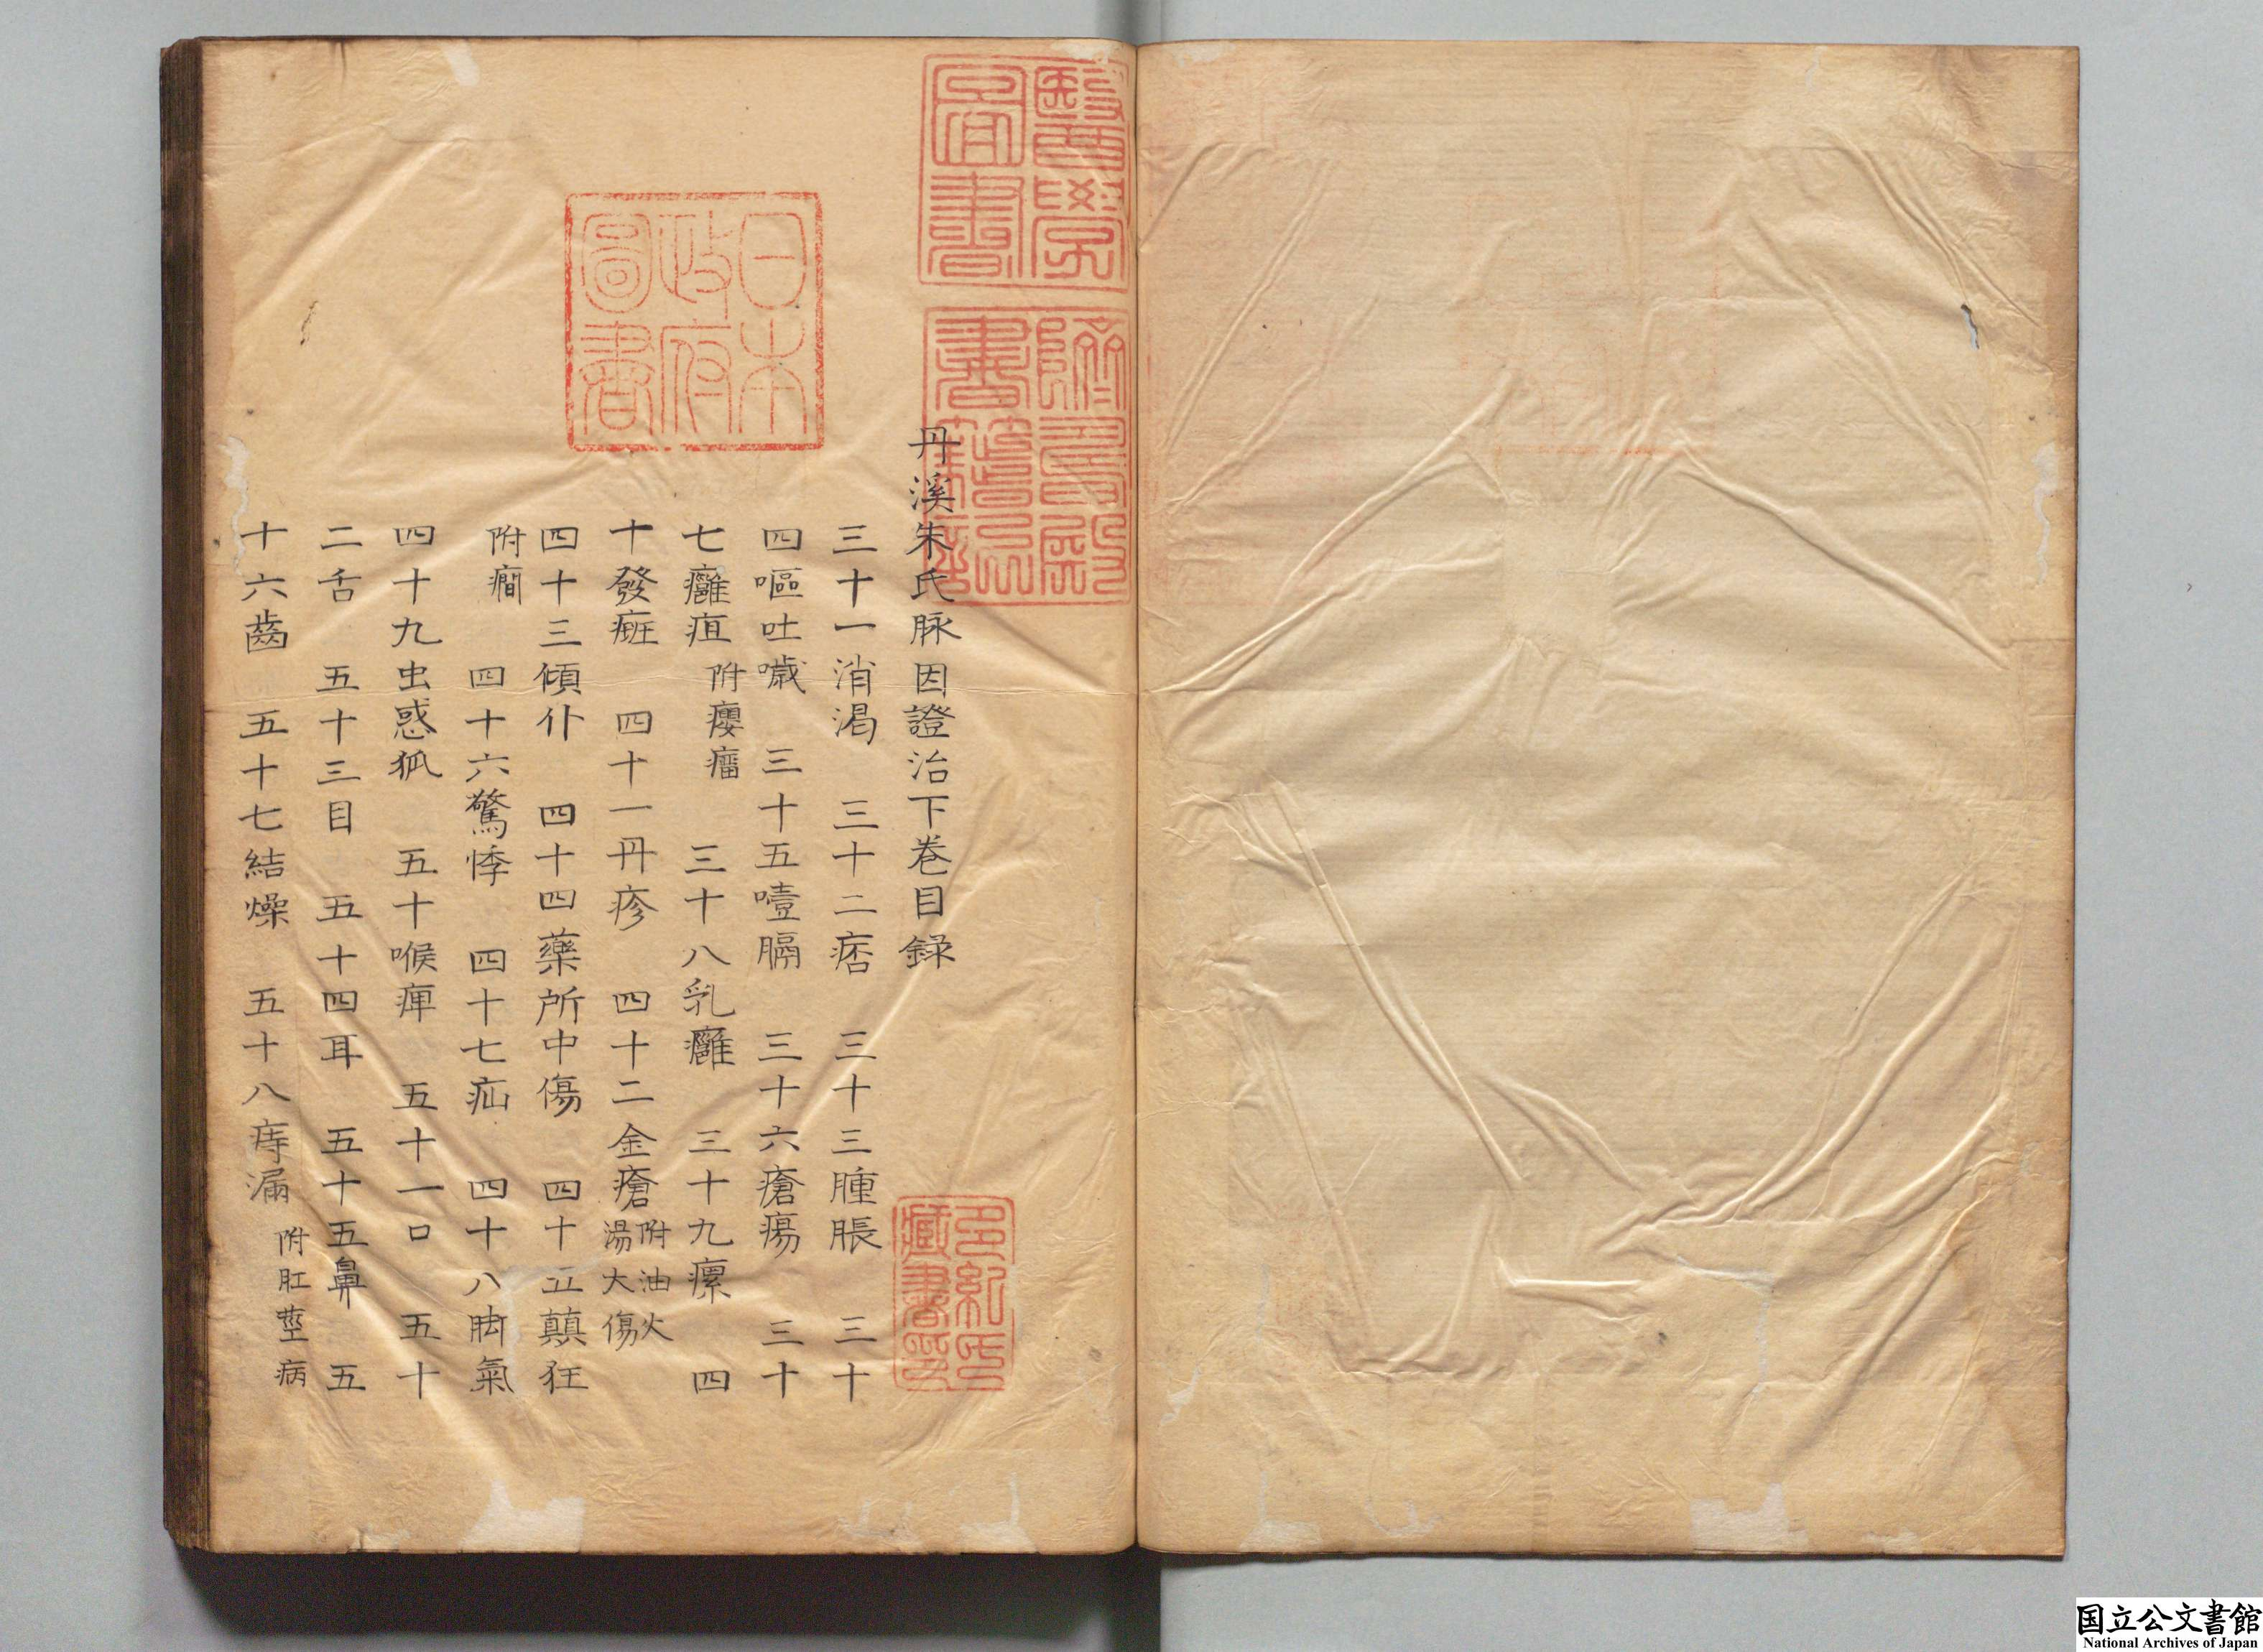 丹溪朱氏脉因證治下巻目録
三十一消渇　三十二痞　三十三腫脹　三十
四嘔吐噦　三十五噎膈　三十六瘡瘍　三十
七癰疽附癭瘤　三十八乳癰　三十九瘰　四
十發癍　四十一丹疹　四十二金瘡附油火湯大傷
四十三傾仆　四十四藥所中傷　四十五顛狂
附癎　四十六驚悸　四十七疝　四十八脚氣
四十九虫惑狐　五十喉痺　五十一口　五十
二舌　五十三目　五十四耳　五十五鼻　五
十六齒　五十七結燥　五十八痔漏附肛莖病
醫學圖書
躋壽殿書籍記
日本政府圖書
多紀氏藏書印
国立公文書館
National Archives of Japan